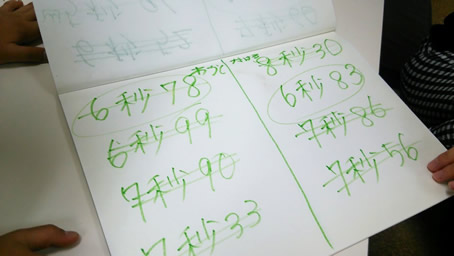 6秒78
6秒99
7秒90
7秒33
8秒30
6秒83
7秒86
7秒56